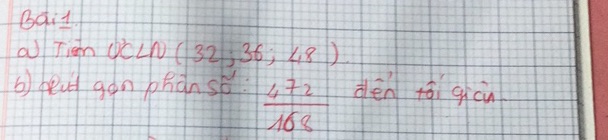 Bài 1
a) Tìm ƯCLN (32; 36; 48).
b) Rút gọn phân số: 472/168 đến tối giản